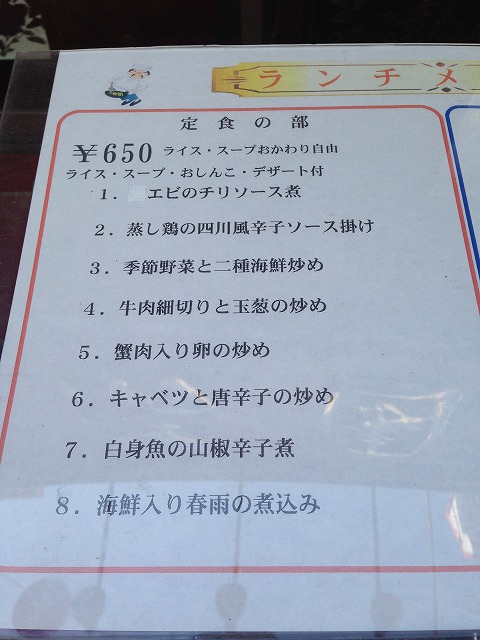 ランチメ
定食の部
￥650 ライス・スープおかわり自由
ライス・スープ・おしんこ・デザート付
1. エビのチリソース煮
2. 蒸し鶏の四川風辛子ソース掛け
3. 季節野菜と二種海鮮炒め
4. 牛肉細切りと玉葱の炒め
5. 蟹肉入り卵の炒め
6. キャベツと唐辛子の炒め
7. 白身魚の山椒辛子煮
8. 海鮮入り春雨の煮込み